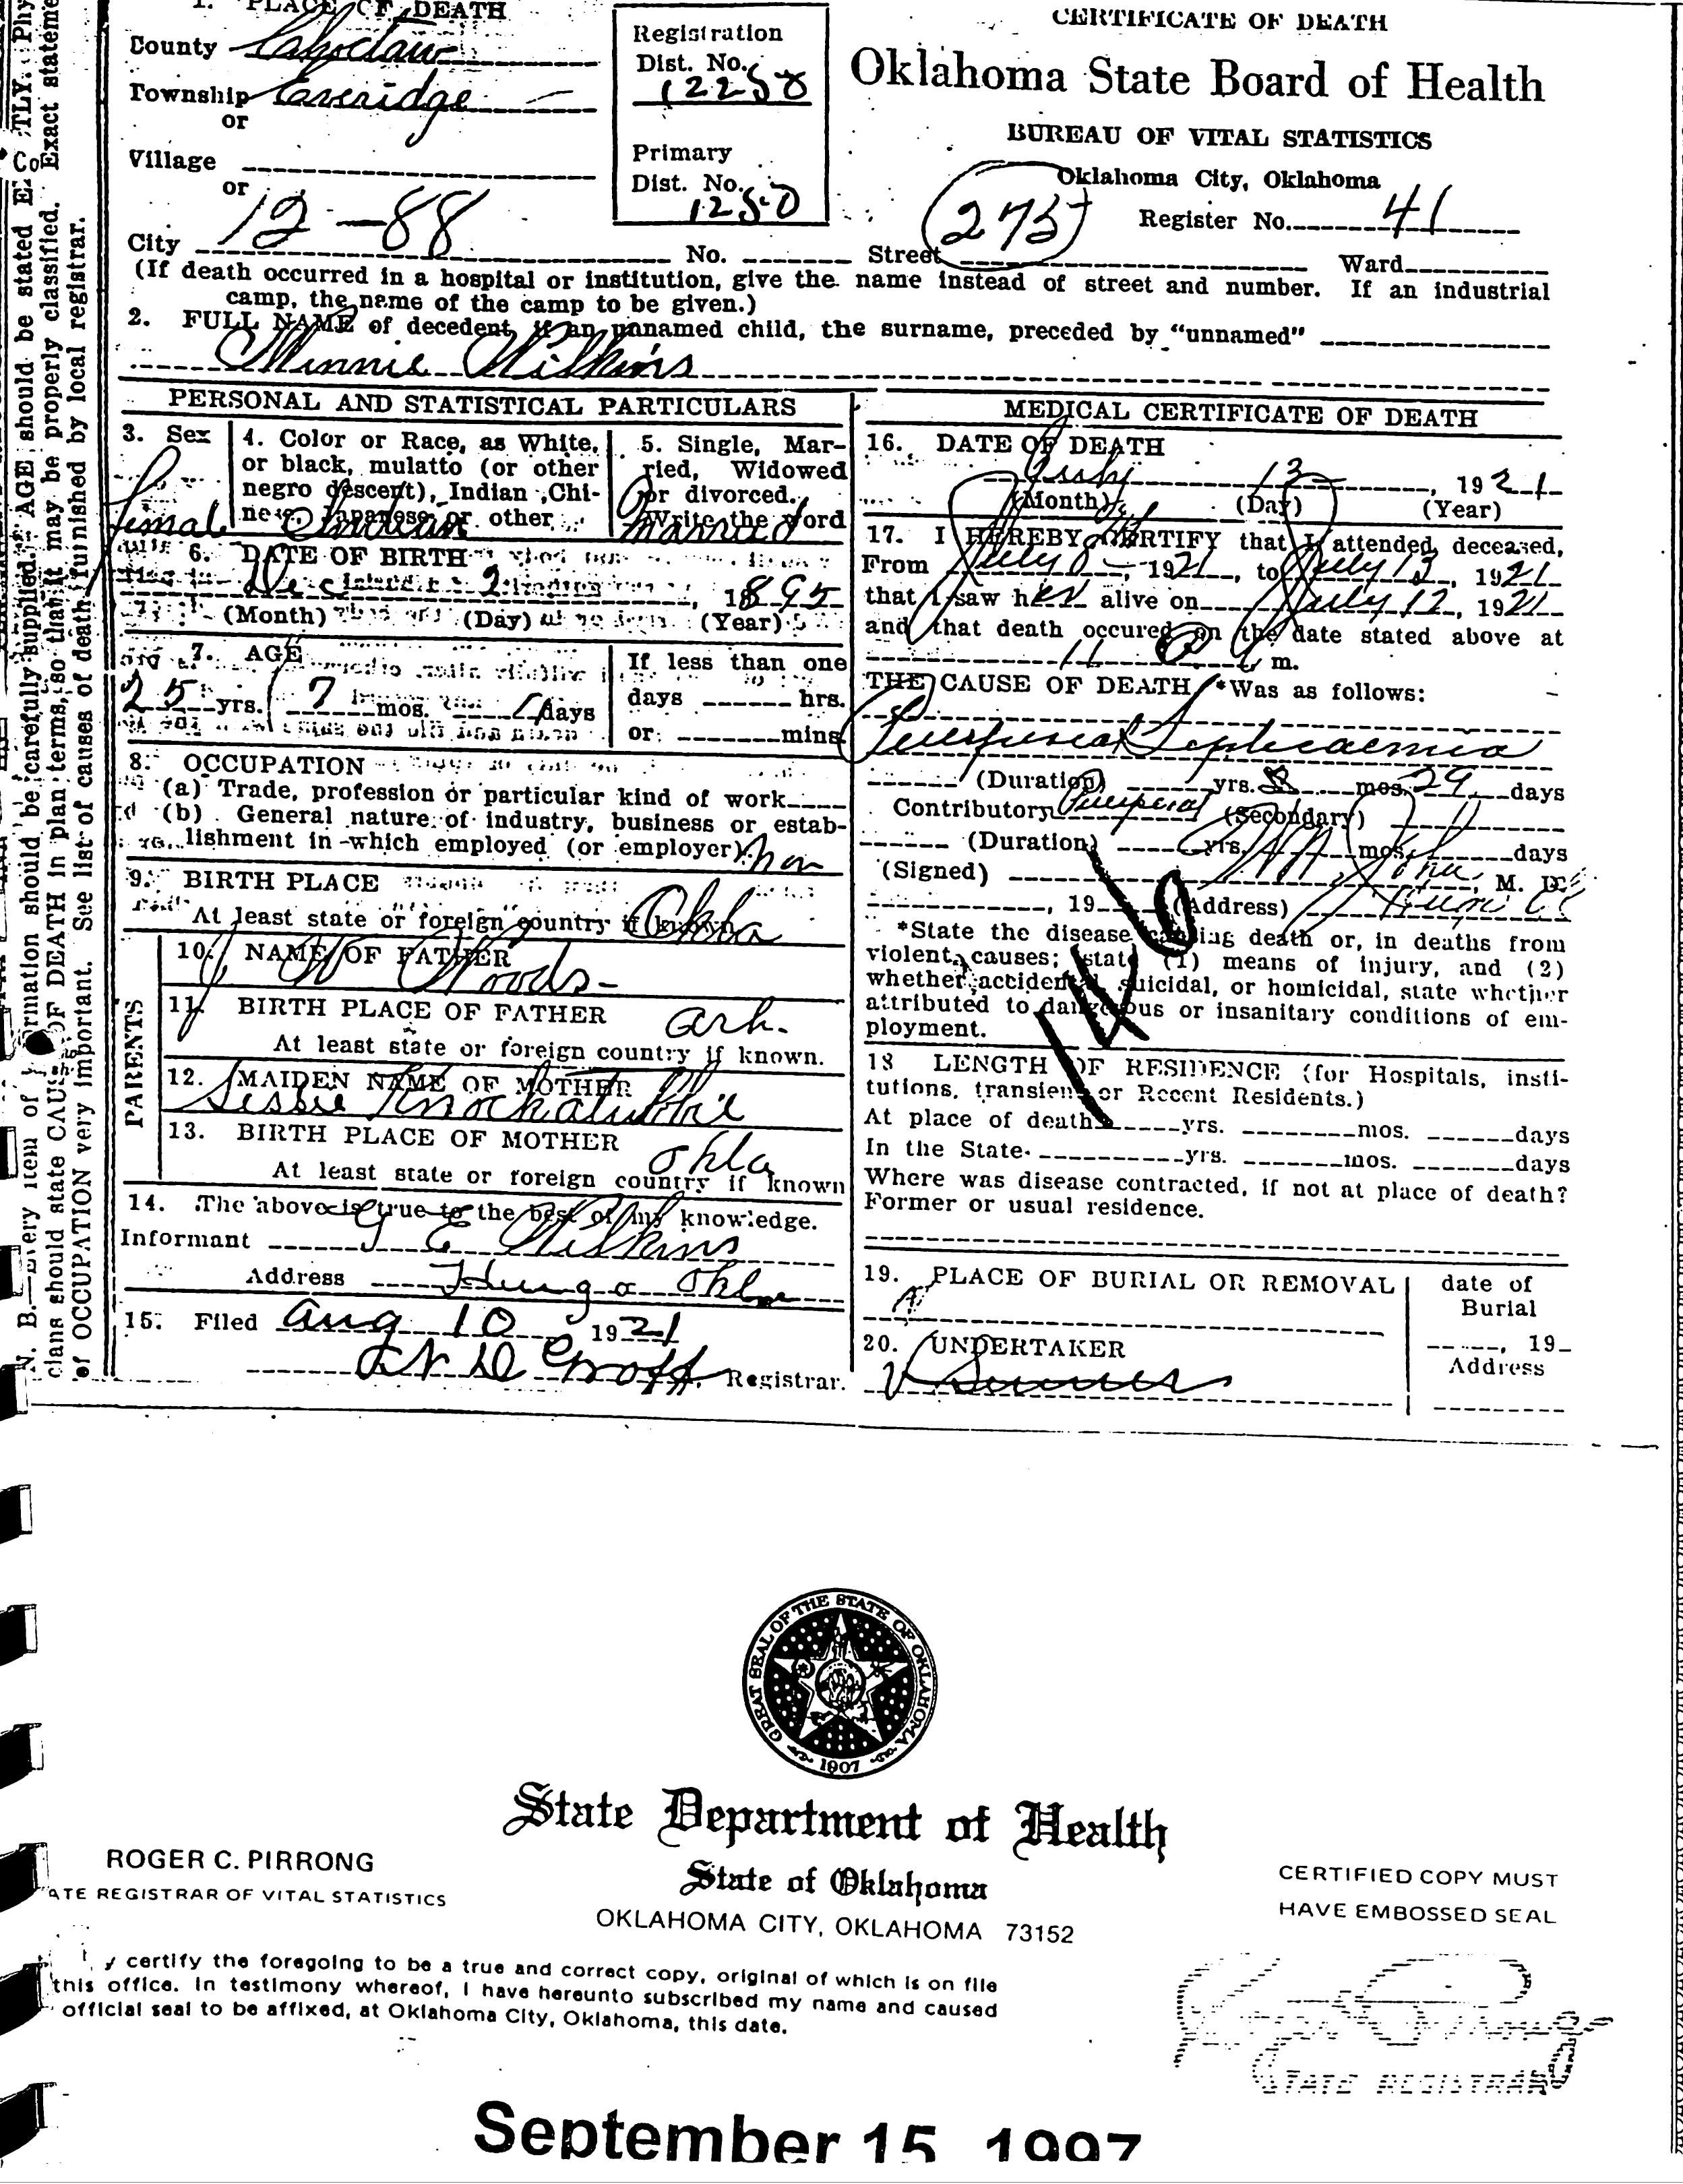 1. PLACE OF DEATH
County Choctaw
Township
or
Village
or
City 12-88 No. Street Ward
Registration
Dist. No.
12250
Primary
Dist. No.
1250
CERTIFICATE OF DEATH
Oklahoma State Board of Health
BUREAU OF VITAL STATISTICS
Oklahoma City, Oklahoma
275
Register No. 41
(If death occurred in a hospital or institution, give the name instead of street and number. If an industrial
camp, the name of the camp to be given.)
2. FULL NAME of decedent, if an unnamed child, the surname, preceded by "unnamed"
Minnie Wilkins
PERSONAL AND STATISTICAL PARTICULARS
3. Sex
Female
4. Color or Race, as White,
or black, mulatto (or other
negro descent), Indian, Chi-
nese, Japanese, or other
Indian
5. Single, Mar-
ried, Widowed
or divorced.
Write the word
Married
6. DATE OF BIRTH
Dec 2, 1895
(Month) (Day) (Year)
7. AGE
25 yrs. 7 mos. days
If less than one
days hrs.
or mins
8. OCCUPATION
(a) Trade, profession or particular kind of work
(b) General nature of industry, business or estab-
lishment in which employed (or employer)
9. BIRTH PLACE
At least state or foreign country if known Okla
PARENTS
10. NAME OF FATHER
J W Woods
11. BIRTH PLACE OF FATHER Ark.
At least state or foreign country if known.
12. MAIDEN NAME OF MOTHER
13. BIRTH PLACE OF MOTHER Okla
At least state or foreign country if known
14. The above is true to the best of my knowledge.
Informant G E Wilkins
Address Hugo Okla
15. Filed Aug 10 1921
Registrar.
MEDICAL CERTIFICATE OF DEATH
16. DATE OF DEATH
July 13, 1921
(Month) (Day) (Year)
17. I HEREBY CERTIFY that I attended deceased,
From July 8, 1921, to July 13, 1921
that I saw her alive on July 12, 1921
and that death occured on the date stated above at
11 a m.
THE CAUSE OF DEATH *Was as follows:
Puerperal Septicaemia
(Duration) yrs. mos. 29 days
Contributory Puerperal (Secondary)
(Duration) yrs. mos. days
(Signed) John, M. D.
, 19 (Address)
*State the disease causing death or, in deaths from
violent causes; state (1) means of injury, and (2)
whether accidental, suicidal, or homicidal, state whether
attributed to dangerous or insanitary conditions of em-
ployment.
18 LENGTH OF RESIDENCE (for Hospitals, insti-
tutions, transient or Recent Residents.)
At place of death yrs. mos. days
In the State yrs. mos. days
Where was disease contracted, if not at place of death?
Former or usual residence.
19. PLACE OF BURIAL OR REMOVAL
date of
Burial
, 19
20. UNDERTAKER
Address
N. B.—Every item of information should be carefully supplied. AGE should be stated
clans should state CAUSE OF DEATH in plan terms, so that it may be properly classified. Exact stateme
of OCCUPATION very important. See list of causes of death furnished by local registrar.
GREAT SEAL OF THE STATE OF OKLAHOMA
1907
State Department of Health
State of Oklahoma
OKLAHOMA CITY, OKLAHOMA 73152
ROGER C. PIRRONG
ATE REGISTRAR OF VITAL STATISTICS
CERTIFIED COPY MUST
HAVE EMBOSSED SEAL
y certify the foregoing to be a true and correct copy, original of which is on file
this office. In testimony whereof, I have hereunto subscribed my name and caused
official seal to be affixed, at Oklahoma City, Oklahoma, this date.
STATE REGISTRAR
September 15 1997